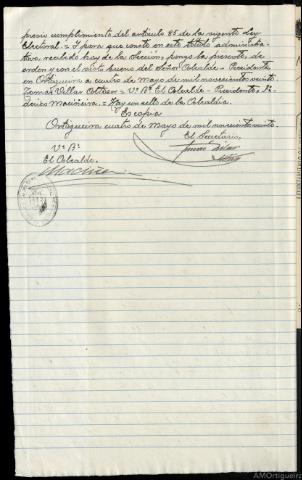 previo cumplimiento del artículo 85 de la vigente Ley
Electoral.= Y para que conste en este título administra-
tivo, recibido hoy de la Sección, pongo la presente, de
orden y con el visto bueno del Señor Alcalde - Presidente
en Ortigueira a cuatro de Mayo de mil novecientos veinte
Tomás Villar = Vº Bº El Alcalde - Presidente,
Darío Maciñeira = Hay un sello de la Alcaldía.
Es copia
Ortigueira cuatro de Mayo de mil novecientos veinte.
Vº Bº
El Secretario,
El Alcalde,
Tomás Villar
Maciñeira
AMOrtigueira